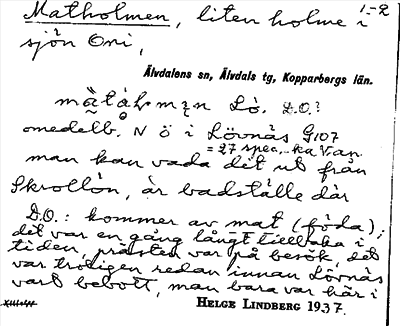 Matholmen, liten holme i 1-2
sjön Oni,
Älvdalens sn, Älvdals tg, Kopparbergs län.
Lö. D.O.:
omedelb. N ö i Lövnäs G107
= 27 spec. ka V.
man kan vada dit ut från
Skrollön, är badställe där
D.O.: kommer av mat (föda);
det var en gång långt tillbaka i
tiden, prästen var på besök, det
var troligen redan innan Lövnäs
vart bebott, man bara var här i
XIII-44 HELGE LINDBERG 1937.